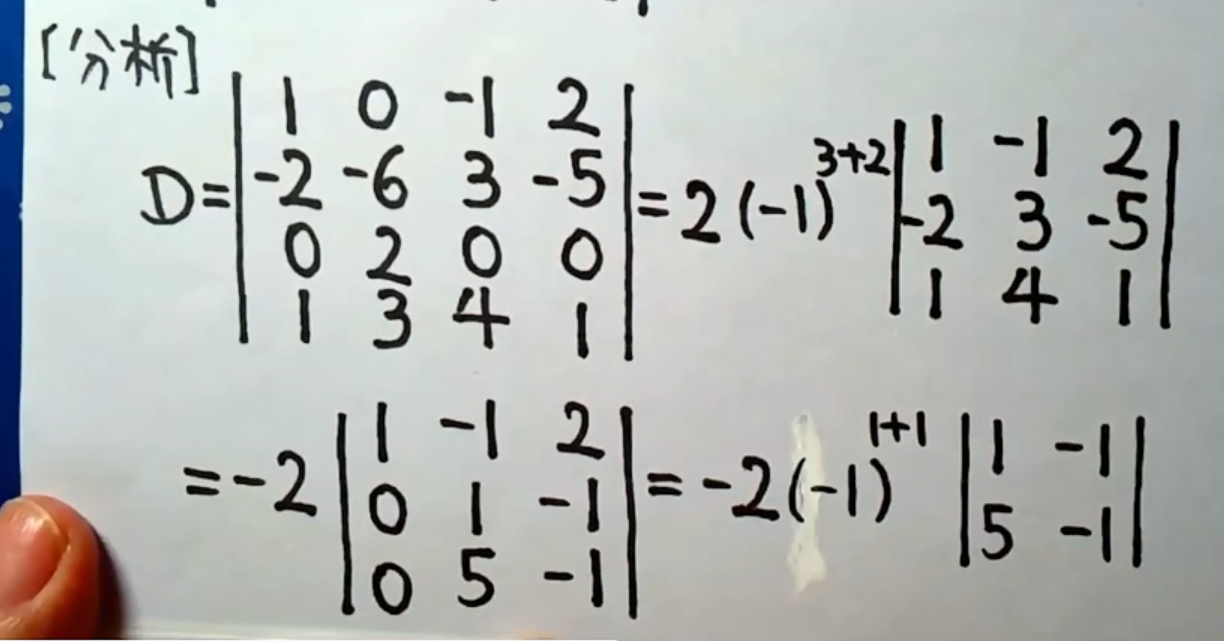 [分析]
D=|1 0 -1 2; -2 -6 3 -5; 0 2 0 0; 1 3 4 1|=2(-1)^{3+2}|1 -1 2; -2 3 -5; 1 4 1|
=-2|1 -1 2; 0 1 -1; 0 5 -1|=-2(-1)^{1+1}|1 -1; 5 -1|